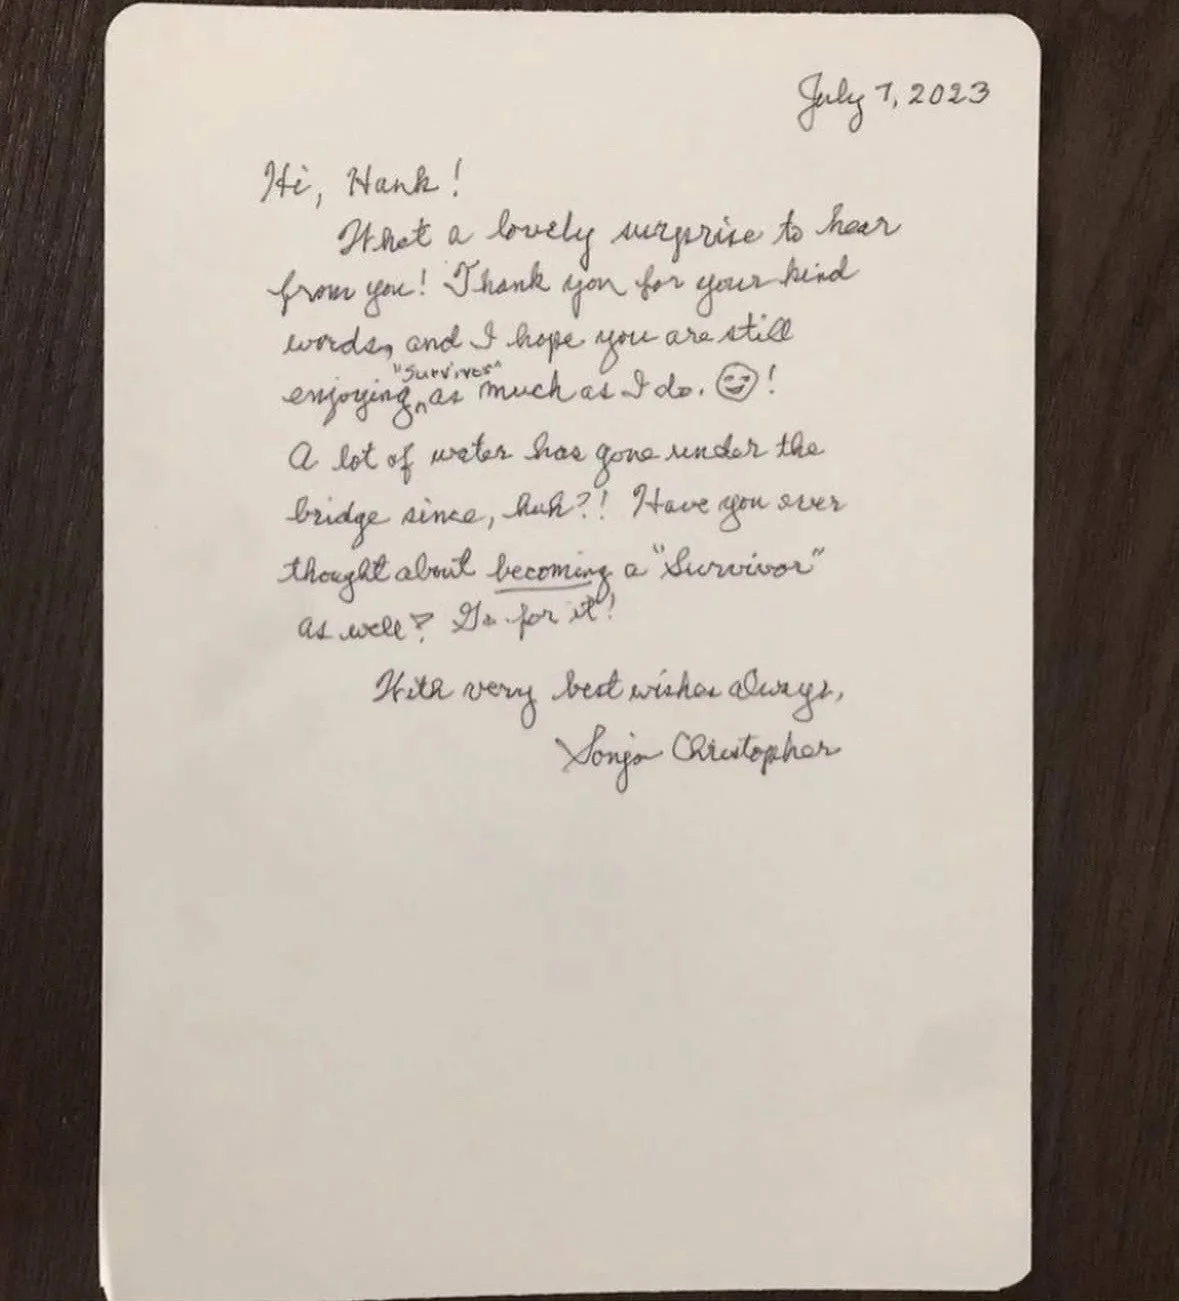 July 7, 2023
Hi, Hank!
What a lovely surprise to hear
from you! Thank you for your kind
words, and I hope you are still
"Survivor"
enjoying ^ as much as I do. 😊!
A lot of water has gone under the
bridge since, huh?! Have you ever
thought about becoming a "Survivor"
as well? Go for it!
With very best wishes always,
Sonja Christopher